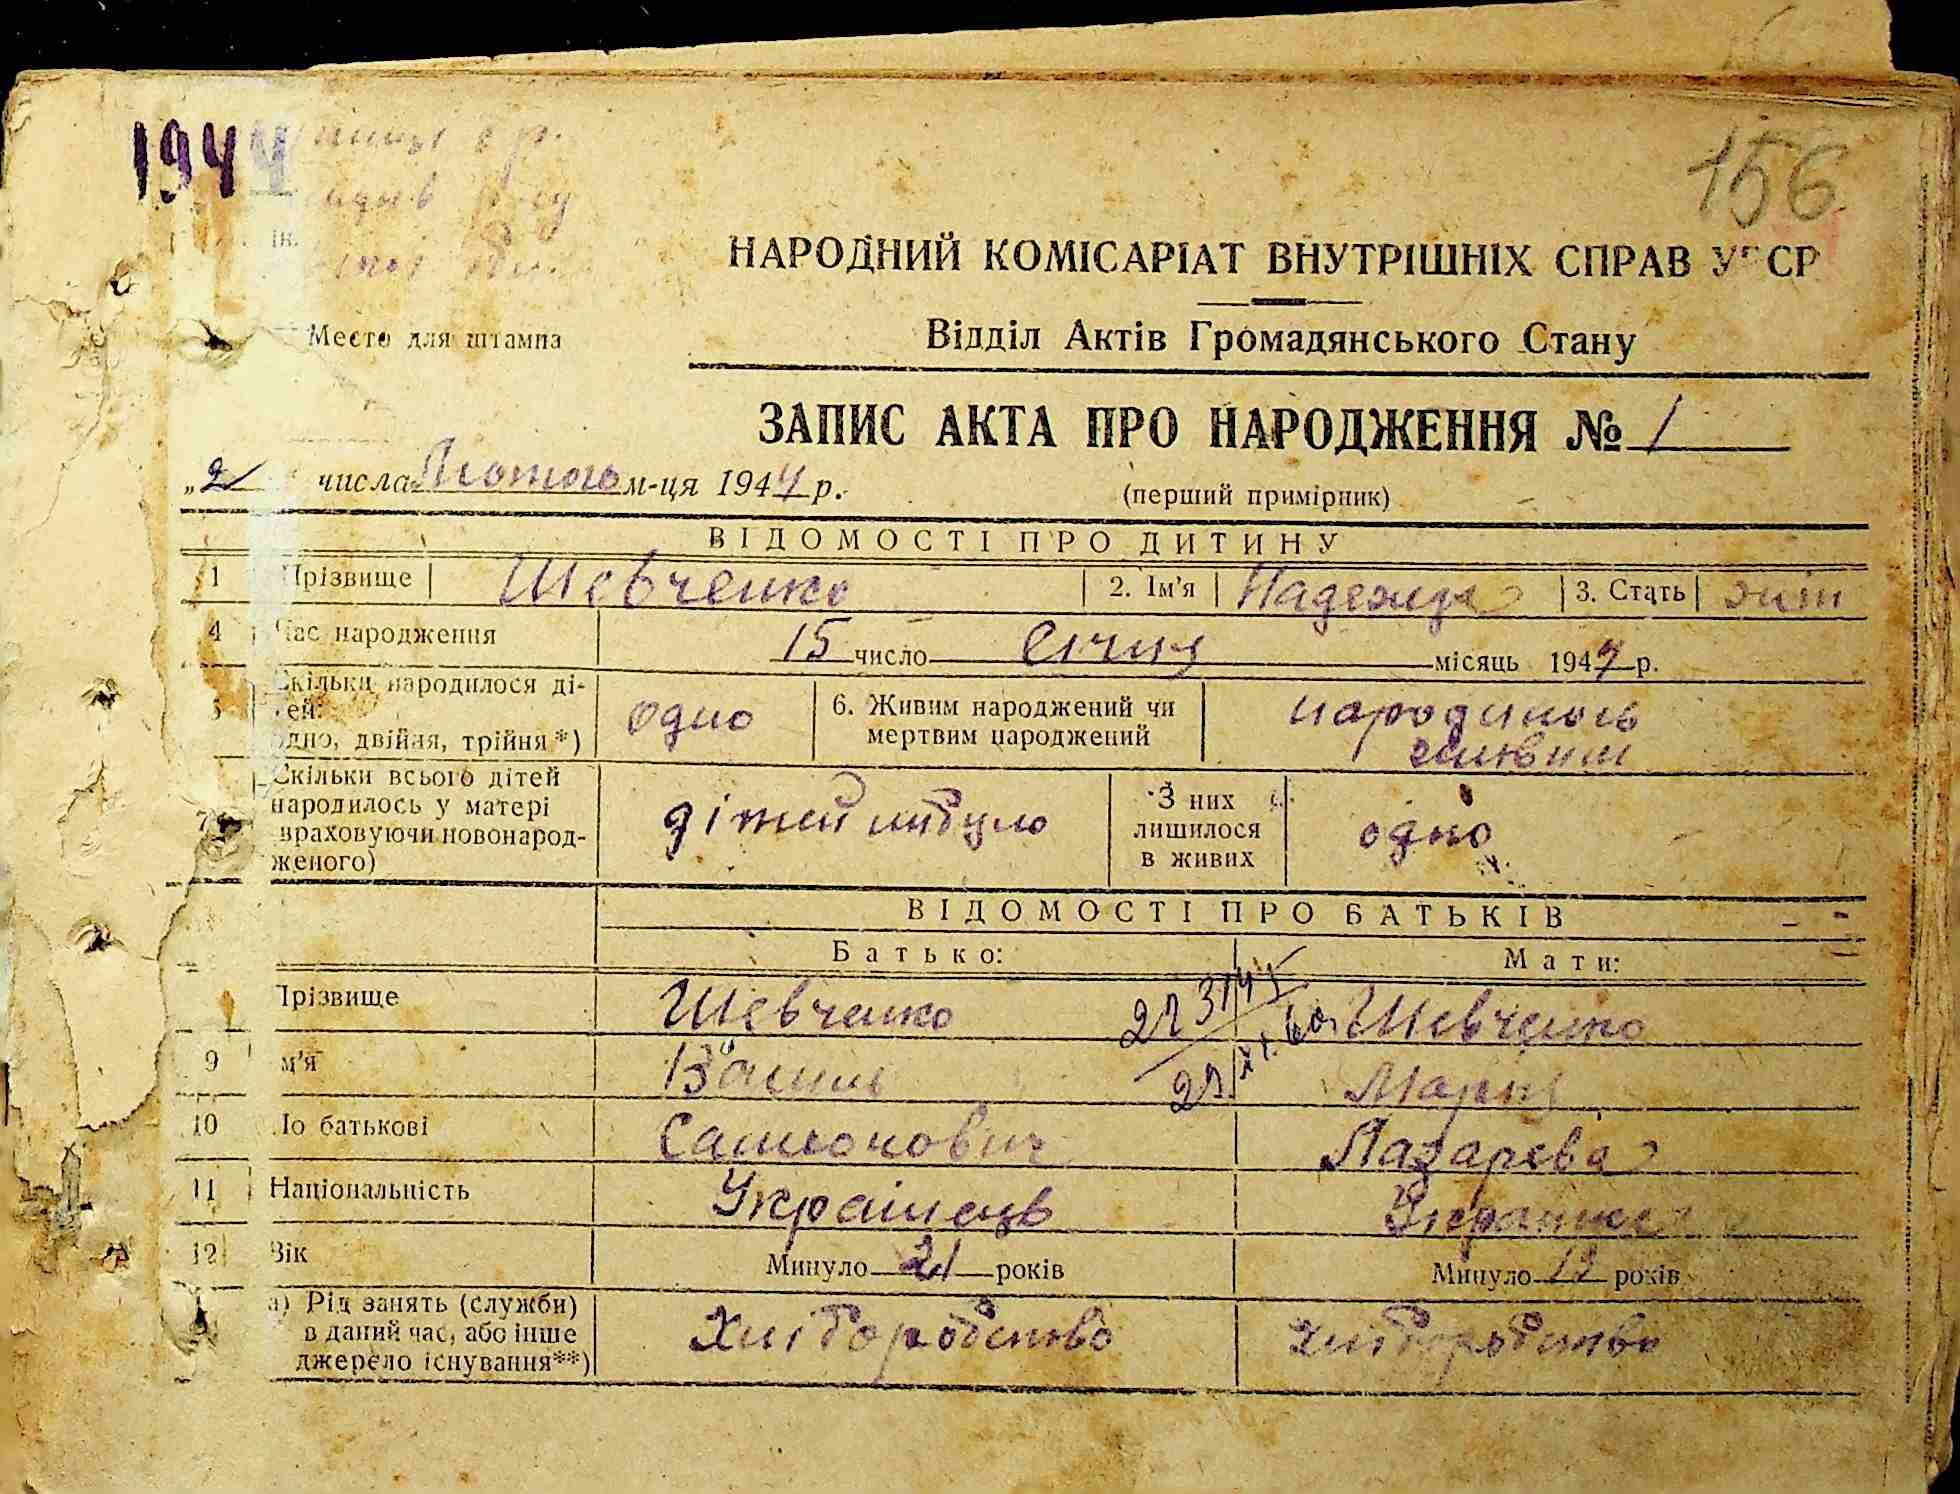 1944
156
НАРОДНИЙ КОМІСАРІАТ ВНУТРІШНІХ СПРАВ У СР
Відділ Актів Громадянського Стану
Место для штампа
ЗАПИС АКТА ПРО НАРОДЖЕННЯ № 1
„2 числа Лютого м-ця 1944 р. (перший примірник)
ВІДОМОСТІ ПРО ДИТИНУ
1 Прізвище Шевченко 2. Ім'я Надежда 3. Стать жін
4 Час народження 15 число Січня місяць 1944 р.
5 Скільки народилося дітей: одно, двійня, трійня*) одно 6. Живим народжений чи мертвим народжений народилось живим
7 Скільки всього дітей народилось у матері враховуючи новонародженого) дітей небуло З них лишилося в живих одно
ВІДОМОСТІ ПРО БАТЬКІВ
Батько: Мати:
Прізвище Шевченко Шевченко
9 м'я Василь Марія
10 По батькові Самсонович Лазарева
11 Національність Українець Українка
12 Вік Минуло 21 років Минуло років
а) Рід занять (служби) в даний час, або інше джерело існування**) Хліборобство Хліборобство